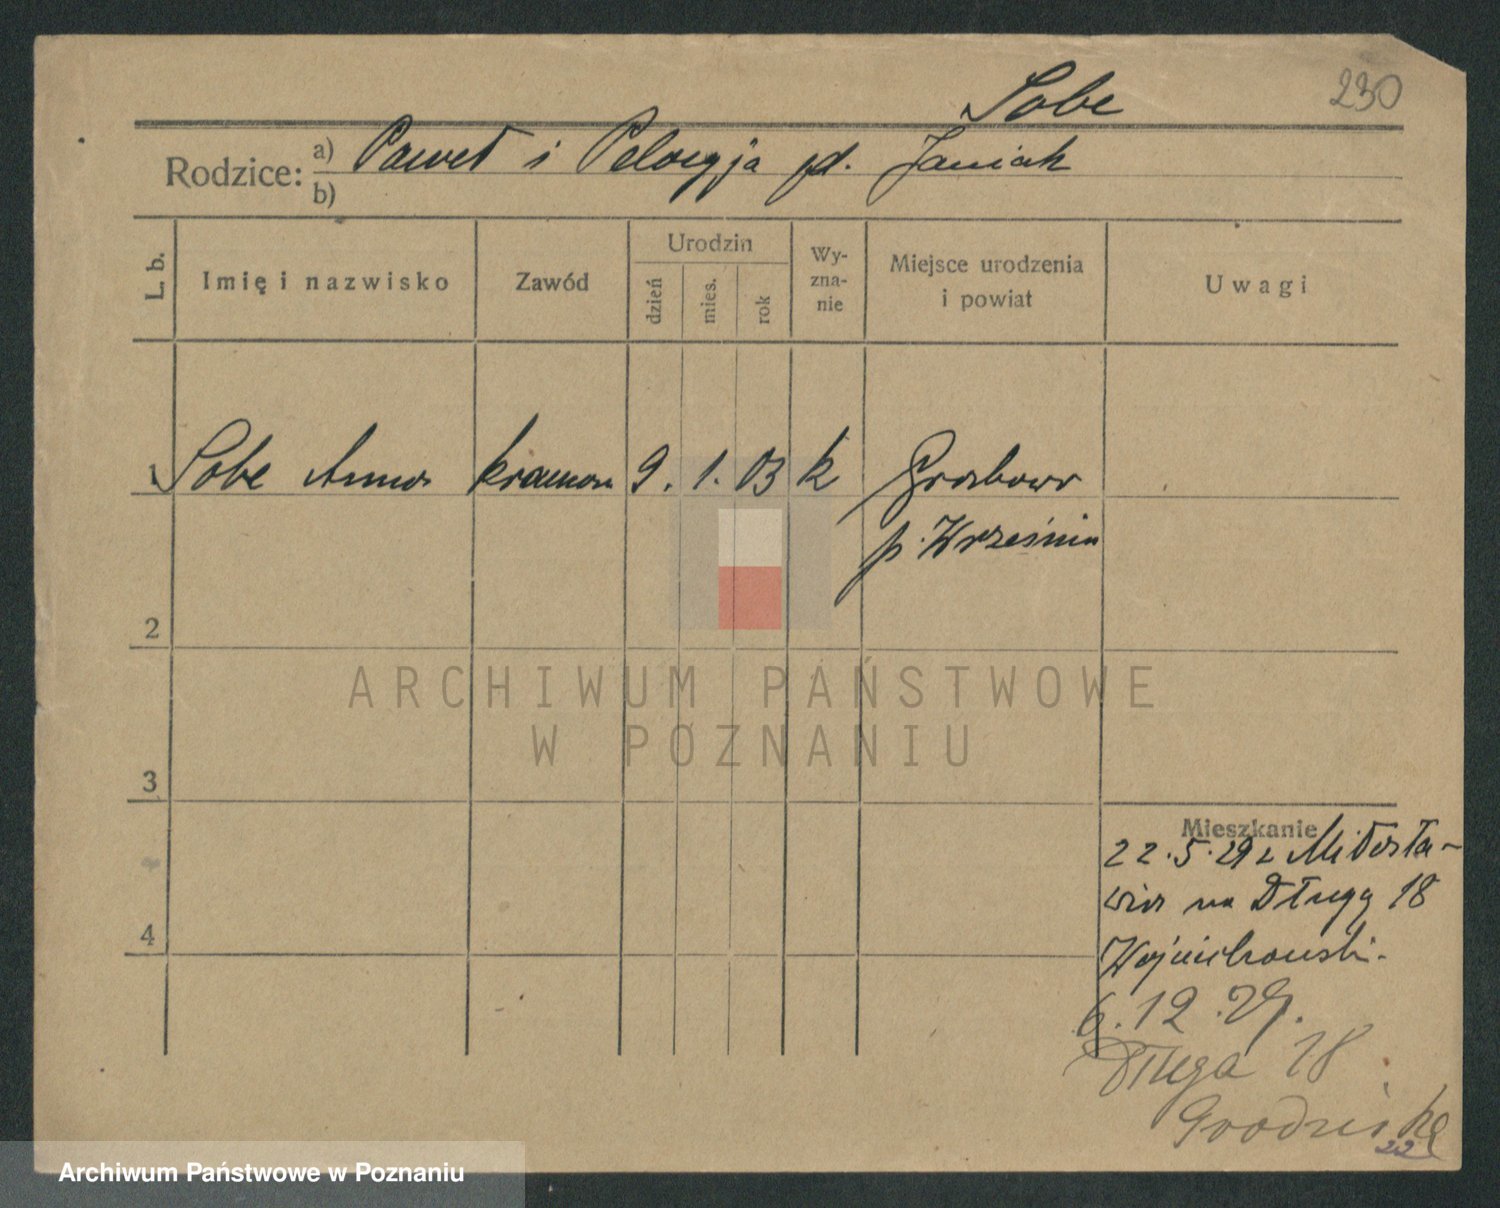 230
Sobe
Rodzice: a) Paweł i Pelagja gd. Janiak
b)
L. b. Imię i nazwisko Zawód Urodzin dzień mies. rok Wy-zna-nie Miejsce urodzenia i powiat Uwagi
1 Sobe Anna 9. 1. 03 k Grabowo
p. Września
2
ARCHIWUM PAŃSTWOWE
W POZNANIU
3
Mieszkanie
22.5.29 z Miłosła-
wia na Długą 18
Wojciechowski.
4
6.12.29.
Długa 18
22
Archiwum Państwowe w Poznaniu